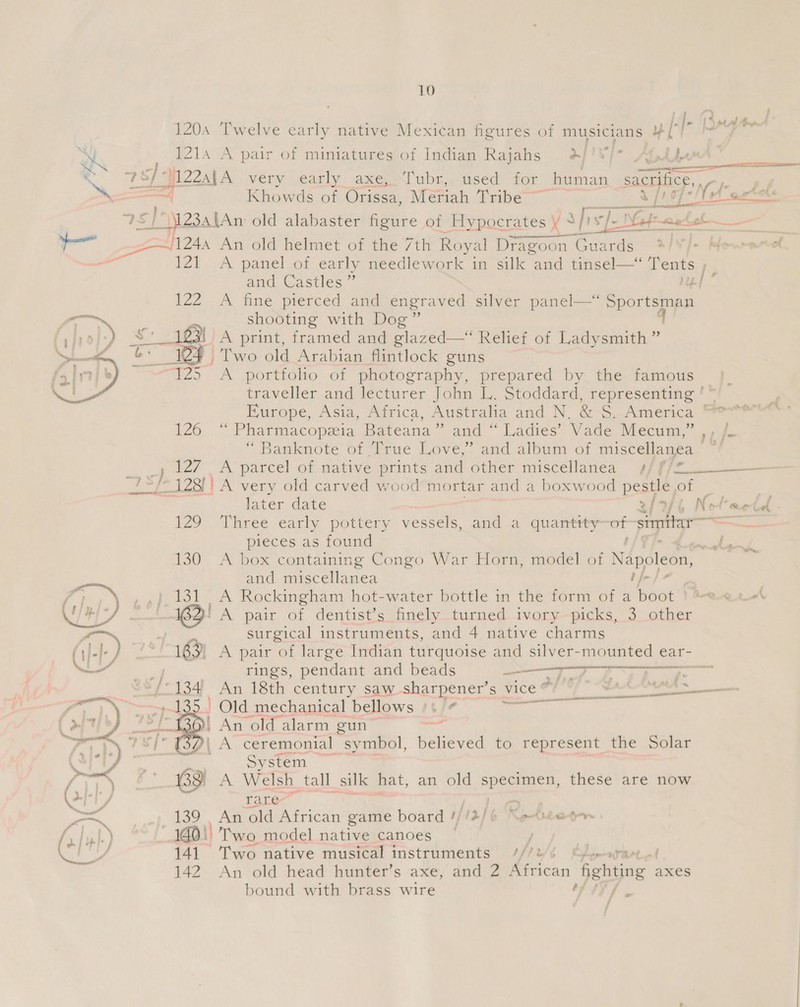 10
120A Twelve early native Mexican figures of musicians
121A A pair of miniatures of Indian Rajahs
122A A very early axe, Tubr, used for human sacrifice,
Khowds of Orissa, Meriah Tribe
123A An old alabaster figure of Hypocrates
124A An old helmet of the 7th Royal Dragoon Guards
121 A panel of early needlework in silk and tinsel—“ Tents
and Castles ”
122 A fine pierced and engraved silver panel—“ Sportsman
shooting with Dog ”
123 A print, framed and glazed—“ Relief of Ladysmith ”
124 Two old Arabian flintlock guns
125 A portfolio of photography, prepared by the famous
traveller and lecturer John L. Stoddard, representing
Europe, Asia, Africa, Australia and N. & S. America
126 “ Pharmacopæia Bateana ” and “ Ladies’ Vade Mecum,”
“ Banknote of True Love,” and album of miscellanea
127 A parcel of native prints and other miscellanea
128 A very old carved wood mortar and a boxwood pestle of
later date
129 Three early pottery vessels, and a quantity of similar
pieces as found
130 A box containing Congo War Horn, model of Napoleon,
and miscellanea
131 A Rockingham hot-water bottle in the form of a boot
132 A pair of dentist’s finely turned ivory picks, 3 other
surgical instruments, and 4 native charms
133 A pair of large Indian turquoise and silver-mounted ear-
rings, pendant and beads
134 An 18th century saw sharpener’s vice
135 Old mechanical bellows
136 An old alarm gun
137 A ceremonial symbol, believed to represent the Solar
System
138 A Welsh tall silk hat, an old specimen, these are now
rare
139 An old African game board
140 Two model native canoes
141 Two native musical instruments
142 An old head hunter’s axe, and 2 African fighting axes
bound with brass wire